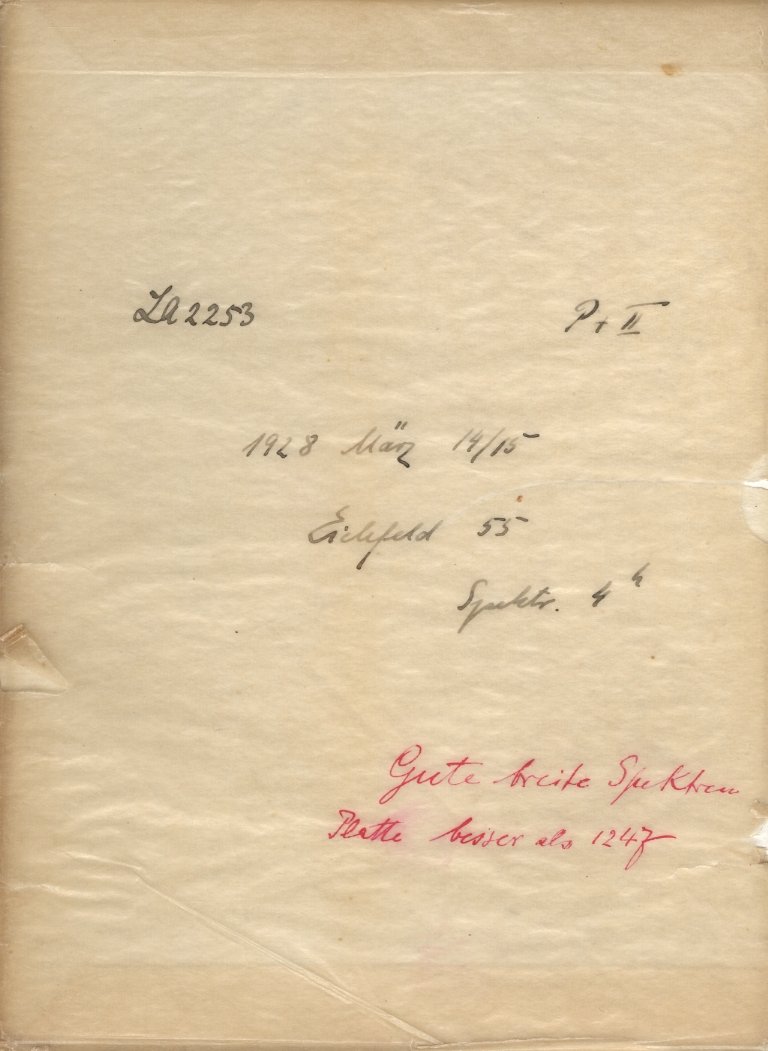 LA 2253 P + II
1928 März 14/15
Eichfeld 55
Spektr. 4 h
Gute breite Spektren
Platte besser als 1247